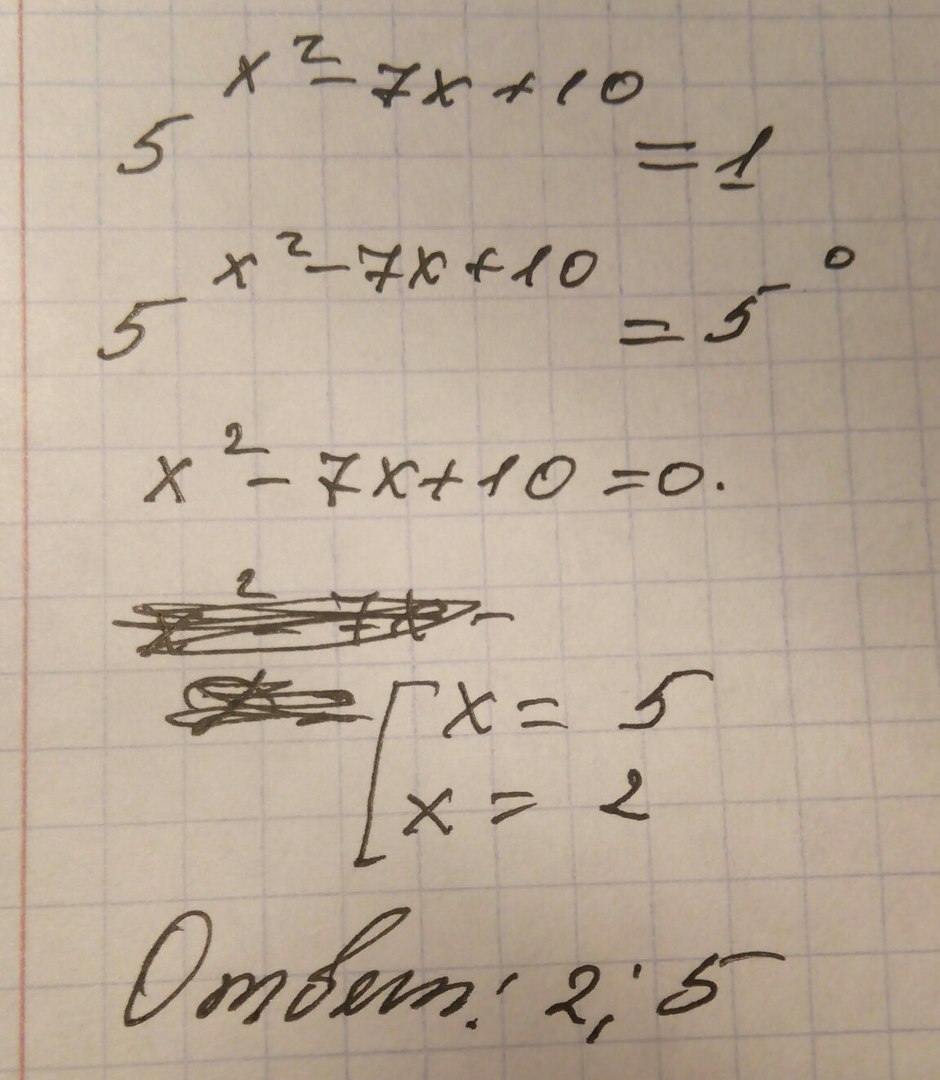 5^{x^2-7x+10} = 1
5^{x^2-7x+10} = 5^0
x^2 - 7x + 10 = 0.
[ x = 5
x = 2
Ответ: 2; 5